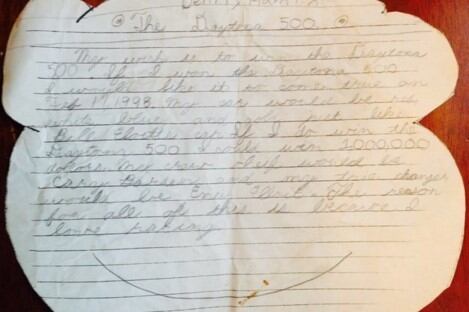 Denny Hamlin
The Daytona 500
My wish is to win the Daytona
500 If I won the Daytona 500
I would like it to come true on
Feb 1998. My car would be red
white blue and gold just like
Bill car If I do win the
Daytona 500 I could win 1000,000
dollors. My crew cheif would be
and my tire changer
would be The reason
for all of this is because I
love racing